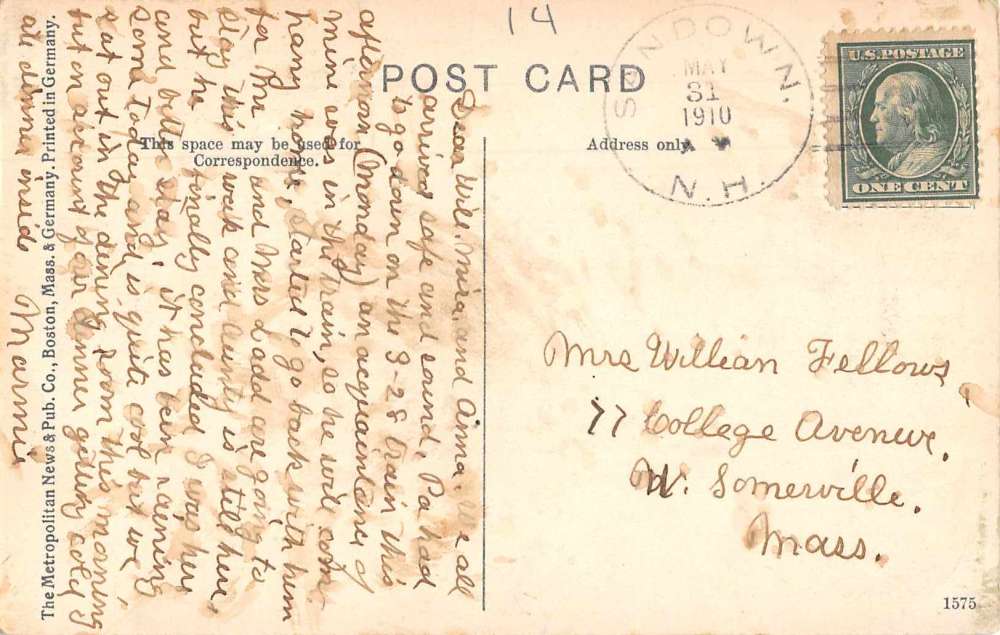 14
POST CARD
SANDOWN, N.H.
MAY
31
1910
U.S. POSTAGE
ONE CENT
This space may be used for
Correspondence.
Address only.
Dear Will, Mira, and Anna. We all
arrived safe and sound. Pa had
to go down on the 3-28 train this
afternoon (Monday) an acquaintance of
mine was in the train, so he will com
hany home, started to go back with him
for Mr and Mrs Ladd are going to
stay this week and Aunty is still here,
but he finally concluded I was here
and better stay, it has been raining
some today and is quite cool but we
sat out in the dining room this morning
but on account of our dinner getting cold
ate dinner inside Mamie
Mrs William Fellows,
77 College Avenue,
W. Somerville.
Mass.
The Metropolitan News & Pub. Co., Boston, Mass. & Germany. Printed in Germany.
1575